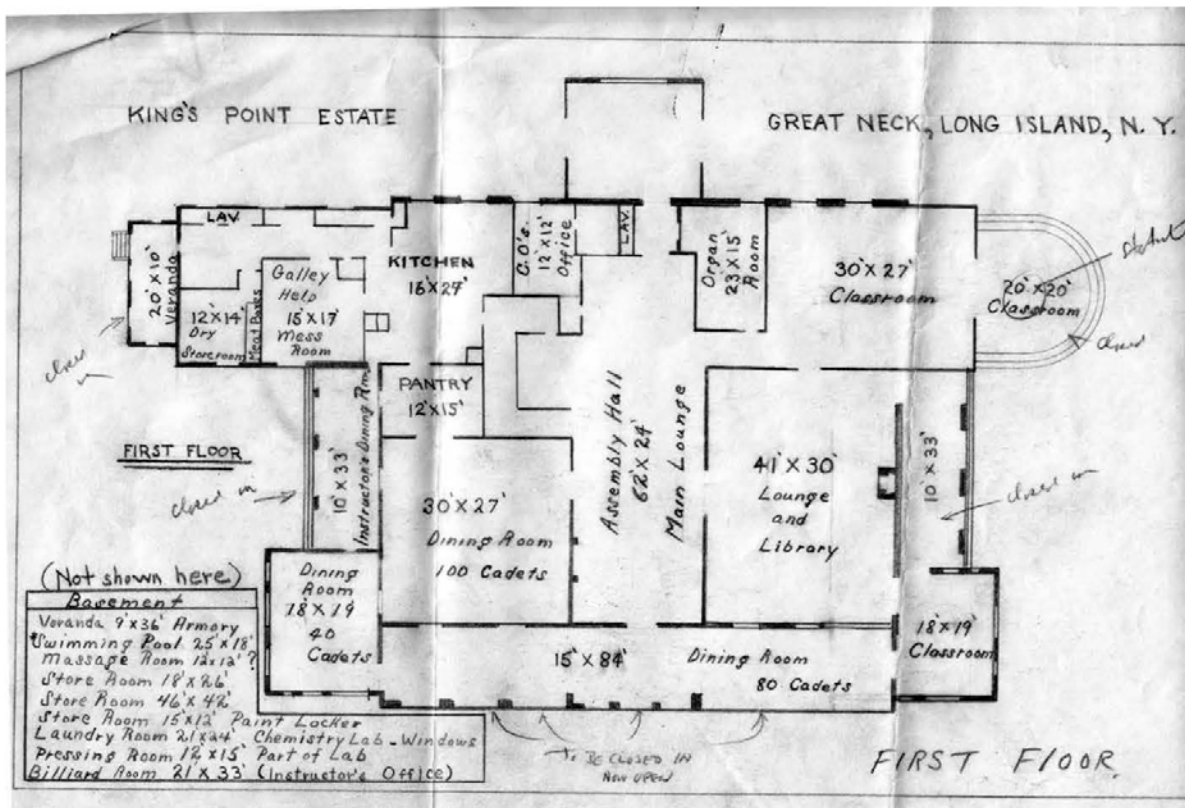 KING'S POINT ESTATE
GREAT NECK, LONG ISLAND, N. Y.
LAV.
20' X 10'
Veranda
12' X 14'
Dry
Storeroom
Meat Boxes
Galley
Help
15' X 17'
Mess
Room
KITCHEN
C.O's.
12' X 12'
Office
LAV.
Organ
23' X 15'
Room
30' X 27'
Classroom
20' X 20'
Classroom
closed
closed
in
PANTRY
12' X 15'
FIRST FLOOR
closed in
10' X 33'
Instructor's Dining Rm.
30' X 27'
Dining Room
100 Cadets
Assembly Hall
62' X 24'
Main Lounge
41' X 30'
Lounge
and
Library
10' X 33'
closed in
Dining
Room
18' X 19'
40
Cadets
15' X 84'
Dining Room
80 Cadets
18' X 19'
Classroom
To BE CLOSED IN
NOW OPEN
FIRST FLOOR
(Not shown here)
Basement
Veranda 9' X 36' Armory
Swimming Pool 25' X 18'
Massage Room 12 X 12' ?
Store Room 18' X 26'
Store Room 46' X 42'
Store Room 15' X 12' Paint Locker
Laundry Room 21' X 24' Chemistry Lab - Windows
Pressing Room 12' X 15' Part of Lab
Billiard Room 21' X 33' (Instructor's Office)